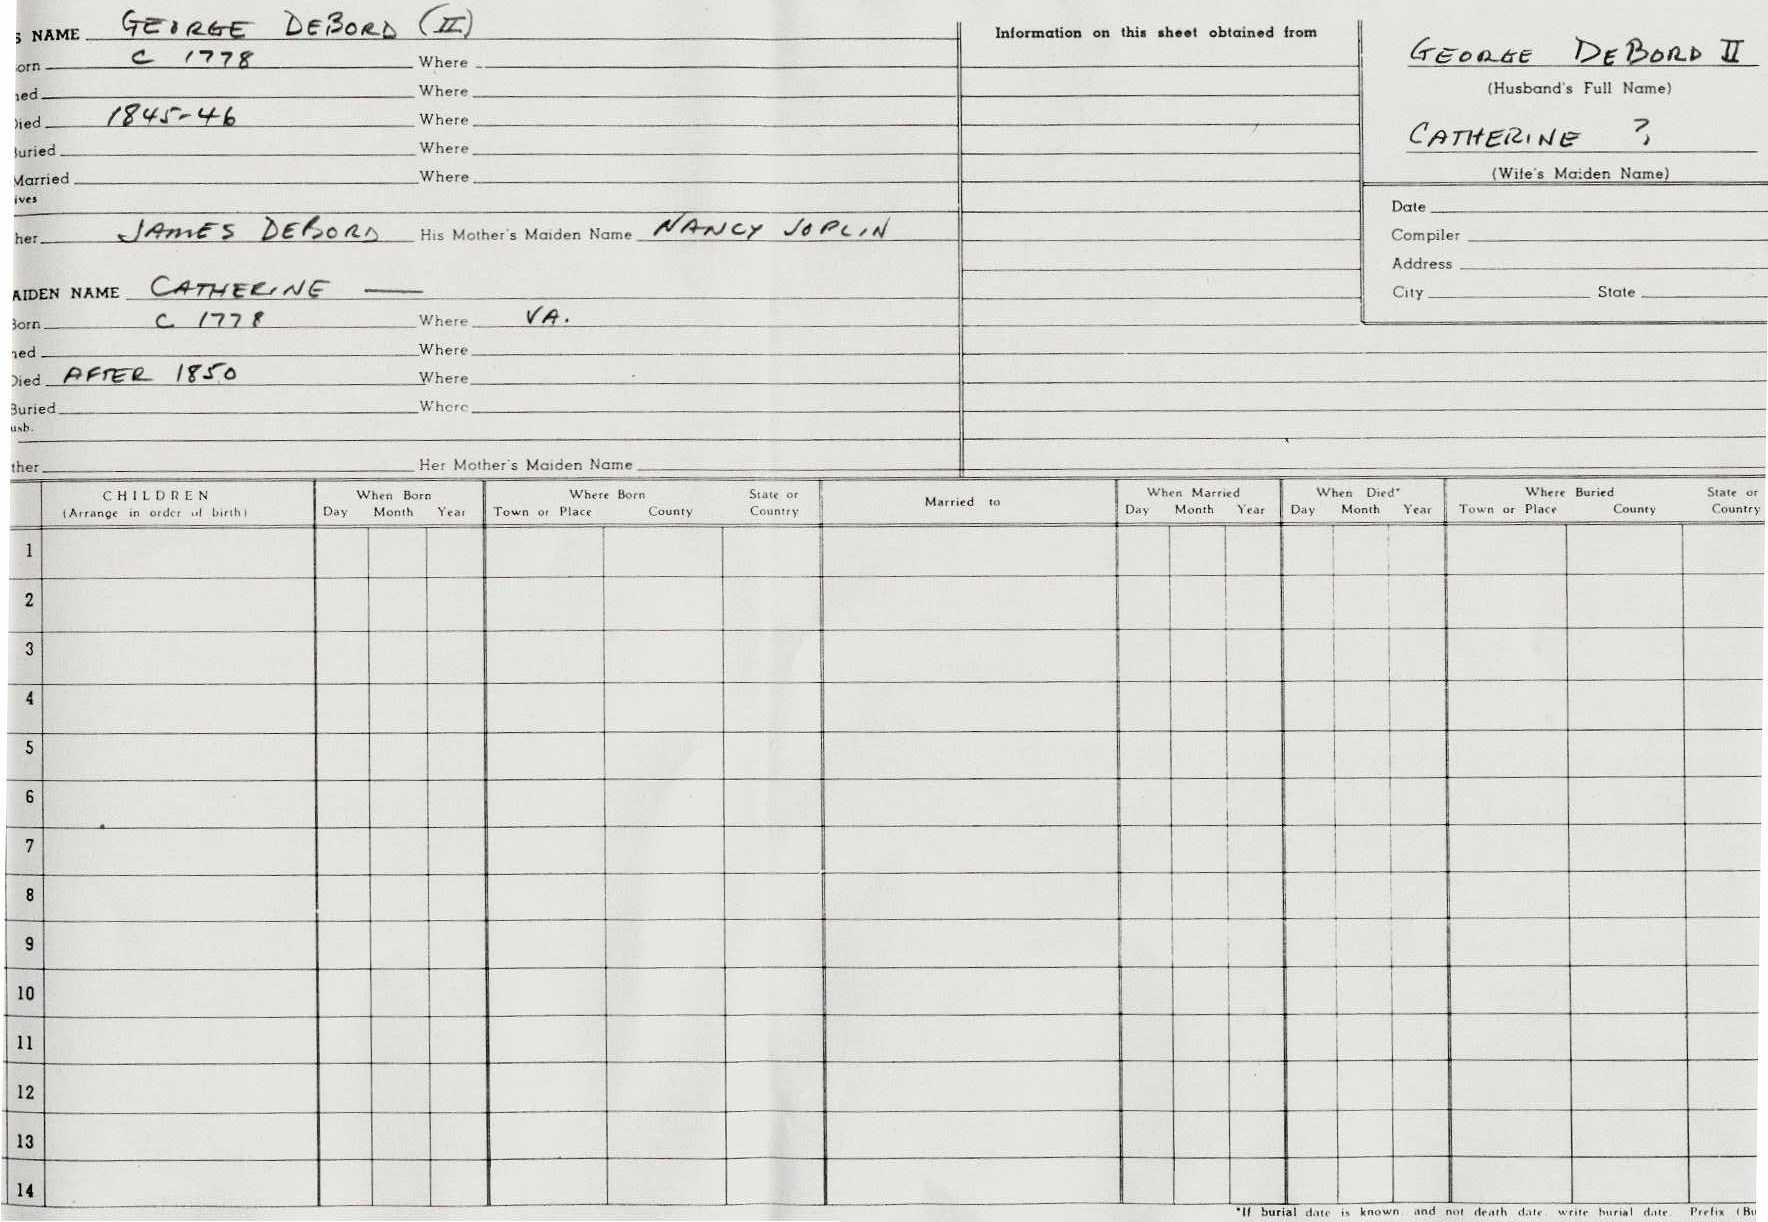 S NAME GEORGE DEBORD (II)
orn C 1778 Where
ned Where
Died 1845-46 Where
Buried Where
Married Where
ives
her JAMES DEBORD His Mother's Maiden Name NANCY JOPLIN
AIDEN NAME CATHERINE —
Born C 1778 Where VA.
ned Where
Died AFTER 1850 Where
Buried Where
usb.
ther Her Mother's Maiden Name
Information on this sheet obtained from
GEORGE DEBORD II
(Husband's Full Name)
CATHERINE ?
(Wife's Maiden Name)
Date
Compiler
Address
City State
CHILDREN When Born Where Born State or Married to When Married When Died* Where Buried State or
(Arrange in order of birth) Day Month Year Town or Place County Country Day Month Year Day Month Year Town or Place County Country
1
2
3
4
5
6
7
8
9
10
11
12
13
14
*If burial date is known and not death date, write burial date. Prefix (Bu